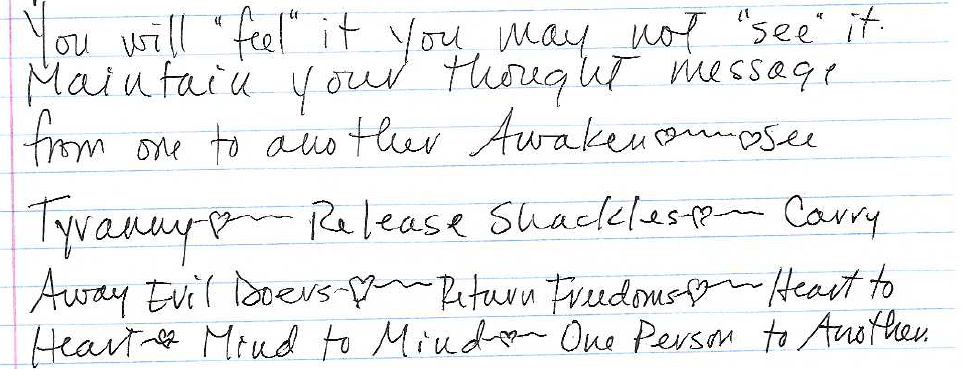 You will "feel" it you may not "see" it.
Maintain your thought message
from one to another Awaken♡~~♡See
Tyranny♡~~ Release Shackles♡~~ Carry
Away Evil Doers♡~~Return Freedoms♡~~Heart to
Heart♡ Mind to Mind♡~ One Person to Another.